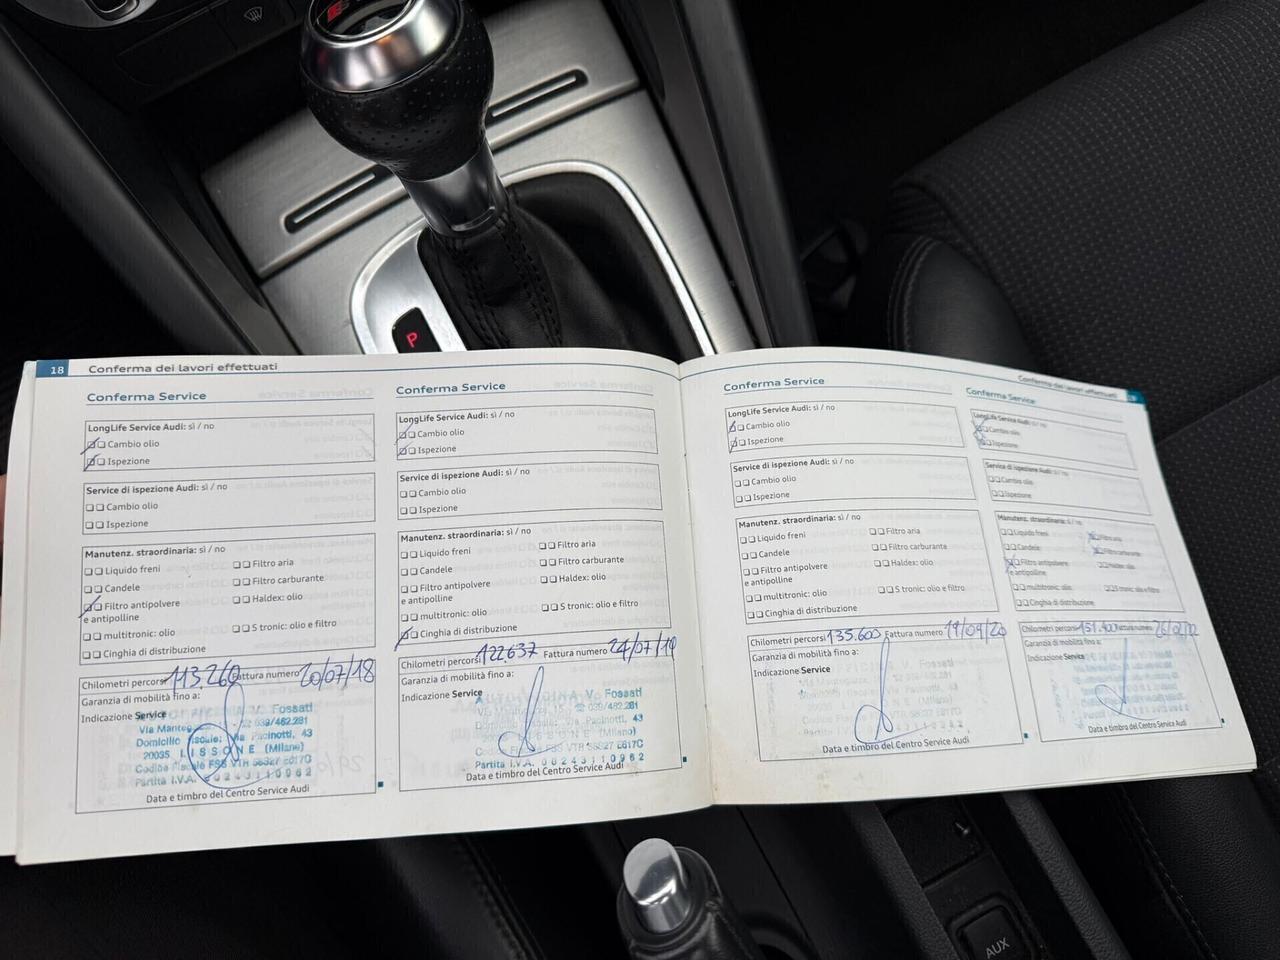 P
18 Conferma dei lavori effettuati
Conferma Service
LongLife Service Audi: sì / no
Cambio olio
Ispezione
Service di ispezione Audi: sì / no
Cambio olio
Ispezione
Manutenz. straordinaria: sì / no
Liquido freni
Filtro aria
Candele
Filtro carburante
Filtro antipolvere
e antipolline
Haldex: olio
multitronic: olio
S tronic: olio e filtro
Cinghia di distribuzione
Chilometri percorsi 113.260 Fattura numero 20/07/18
Garanzia di mobilità fino a:
Indicazione Service
Via Manteg 039/482.281
Domicilio Fiscale: Via Pacinotti, 43
20035 LISSONE (Milano)
Codice Fiscale FSS VTR 56S27 E617C
Partita I.V.A. 00243110962
Data e timbro del Centro Service Audi
Conferma Service
LongLife Service Audi: sì / no
Cambio olio
Ispezione
Service di ispezione Audi: sì / no
Cambio olio
Ispezione
Manutenz. straordinaria: sì / no
Liquido freni
Filtro aria
Candele
Filtro carburante
Filtro antipolvere
e antipolline
Haldex: olio
multitronic: olio
S tronic: olio e filtro
Cinghia di distribuzione
Chilometri percorsi 122.637 Fattura numero 24/07/19
Garanzia di mobilità fino a:
Indicazione Service
V. Fossati
039/482.281
Domicilio Fiscale: Via Pacinotti, 43
LISSONE (Milano)
Codice Fiscale FSS VTR 56S27 E617C
Partita I.V.A. 00243110962
Data e timbro del Centro Service Audi
Conferma Service
LongLife Service Audi: sì / no
Cambio olio
Ispezione
Service di ispezione Audi: sì / no
Cambio olio
Ispezione
Manutenz. straordinaria: sì / no
Liquido freni
Filtro aria
Candele
Filtro carburante
Filtro antipolvere
e antipolline
Haldex: olio
multitronic: olio
S tronic: olio e filtro
Cinghia di distribuzione
Chilometri percorsi 135.600 Fattura numero 19/09/20
Garanzia di mobilità fino a:
Indicazione Service
V. Fossati
Data e timbro del Centro Service Audi
Conferma dei lavori effettuati 19
Conferma Service
LongLife Service Audi: sì / no
Cambio olio
Ispezione
Service di ispezione Audi: sì / no
Cambio olio
Ispezione
Manutenz. straordinaria: sì / no
Liquido freni
Filtro aria
Candele
Filtro carburante
Filtro antipolvere
e antipolline
Haldex: olio
multitronic: olio
S tronic: olio e filtro
Cinghia di distribuzione
Chilometri percorsi 151.400 Fattura numero
Garanzia di mobilità fino a:
Indicazione Service
Data e timbro del Centro Service Audi
AUX